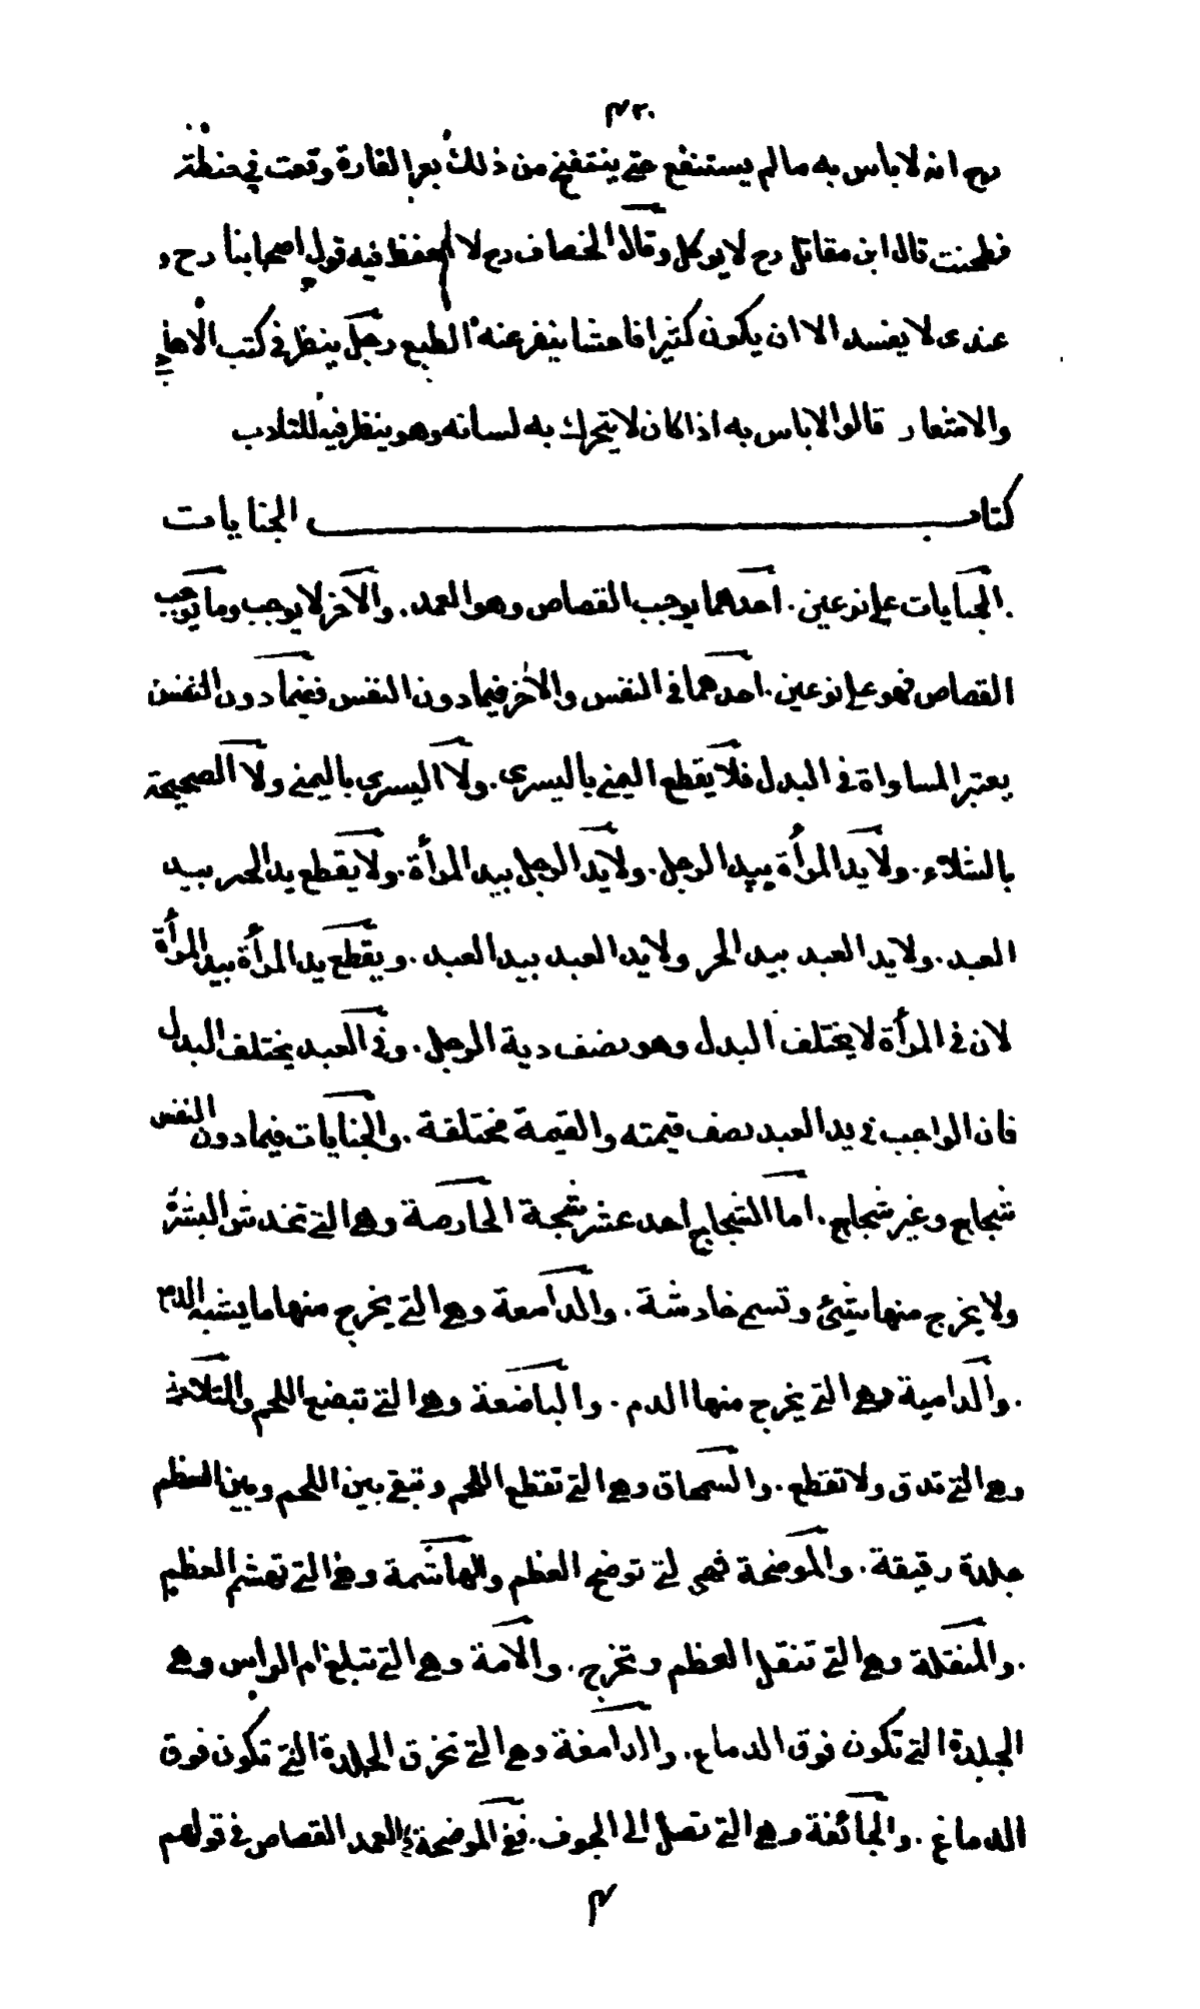 ٤٢٠
رح انه لا باس به ما لم يستنقع حتى ينتفخ من ذلك بعر الفارة وقعت في حنطة
فطحنت قال ابن مقاتل رح لا يوكل وقال الخصاف رح لا احفظ فيه قول اصحابنا رح و
عندى لا يفسد الا ان يكون كثيرا فاحشا ينفر عنه الطبع رجل ينظر في كتب الاهاجي
والاشعار قالوا لا باس به اذا كان لا يتحرك به لسانه وهو ينظر فيه للتادب
كتاب الجنايات
الجنايات على نوعين. احدهما يوجب القصاص وهو العمد. والآخر لا يوجب وما يوجب
القصاص فهو على نوعين. احدهما في النفس والآخر فيما دون النفس ففيما دون النفس
يعتبر المساواة في البدل فلا يقطع اليمنى باليسرى. ولا اليسرى باليمنى ولا الصحيحة
بالشلاء. ولا يد المرأة بيد الرجل. ولا يد الرجل بيد المرأة. ولا يقطع يد الحر بيد
العبد. ولا يد العبد بيد الحر ولا يد العبد بيد العبد. ويقطع يد المرأة بيد المرأة
لان في المرأة لا يختلف البدل وهو نصف دية الرجل. وفي العبد يختلف البدل
فان الواجب في يد العبد نصف قيمته والقيمة مختلفة. والجنايات فيما دون النفس
شجاج وغير شجاج. اما الشجاج احد عشر شجة الحارصة وهي التي تخدش البشرة
ولا يخرج منها شيئ وتسمى خادشة. والدامعة وهي التي يخرج منها ما يشبه الدم
. والدامية وهي التي يخرج منها الدم. والباضعة وهي التي تبضع اللحم والمتلاحمة
وهي التي تدق ولا تقطع. والسمحاق وهي التي تقطع اللحم وتبقى بين اللحم وبين العظم
جلدة رقيقة. والموضحة فهي لتي توضح العظم والهاشمة وهي التي تهشم العظم
. والمنقلة وهي التي تنقل العظم وتخرج. والآمة وهي التي تبلغ ام الراس وهي
الجلدة التي تكون فوق الدماغ. والدامغة وهي التي تخرق الجلدة التي تكون فوق
الدماغ. والجائفة وهي التي تصل الى الجوف. ففي الموضحة في العمد القصاص في قولهم